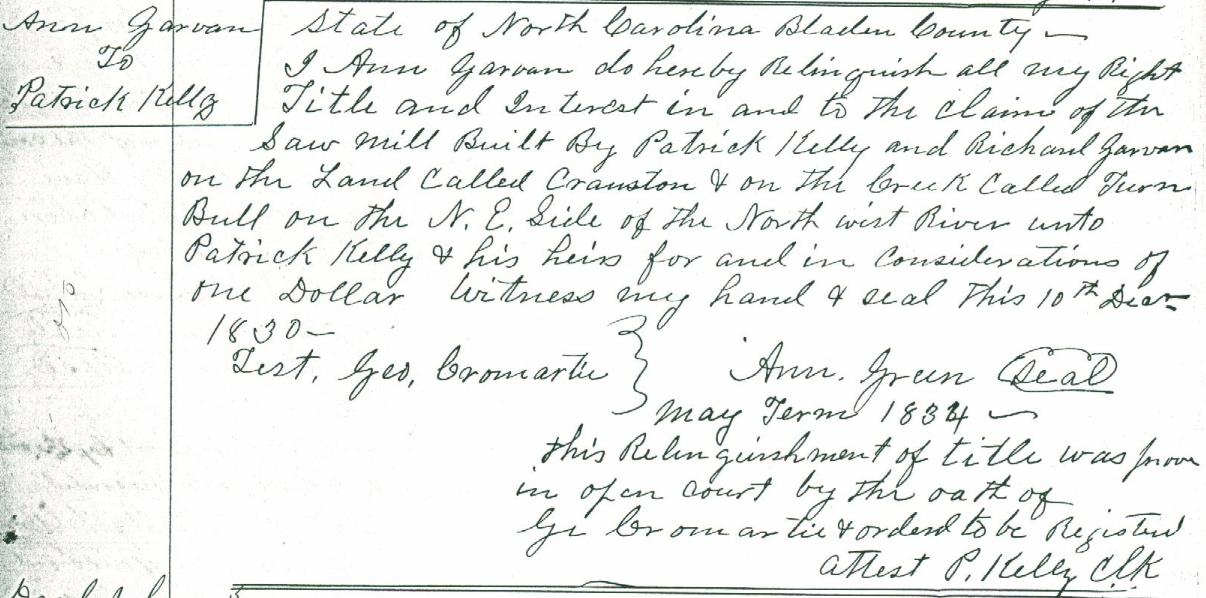 Ann Garvan
To
Patrick Kelly
State of North Carolina Bladen County
I Ann Garvan do hereby Relinquish all my Right
Title and Interest in and to the claim of the
Saw Mill Built By Patrick Kelly and Richard Garvan
on the Land Called Cranston & on the Creek Called Turn
Bull on the N. E. Side of the North west River unto
Patrick Kelly & his heirs for and in Considerations of
one Dollar Witness my hand & seal This 10th Decr
1830
Test. Geo, Cromartie } Ann. Green Seal
May Term 1834
this Relinquishment of title was prove
in open court by the oath of
Ge Cromartie & orderd to be Registerd
attest P. Kelly Clk